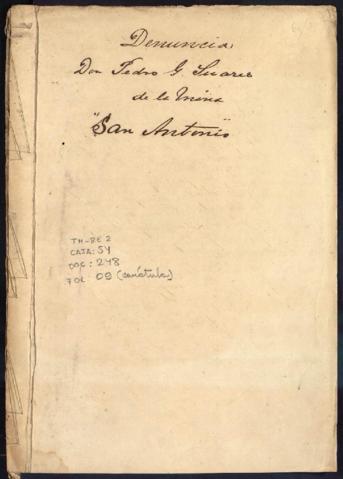 Denuncia
Don Pedro G. Suarez
de la mina
"San Antonio"
TH-RE 2
CAJA: 54
DOC: 248
FOL 09 (carátula)